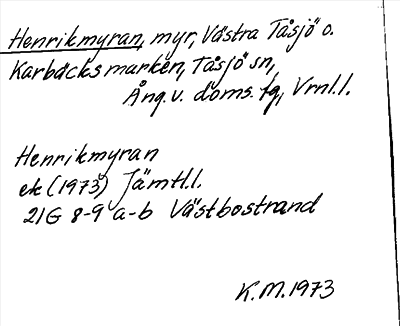 Henrikmyran, myr, Västra Tåsjö o.
Karbäcksmarken, Tåsjö sn,
Ång. v. doms. tg, Vrnl. l.
Henrikmyran
ek (1973) Jämtl. l.
21G 8-9 a-b Västbostrand
K. M. 1973